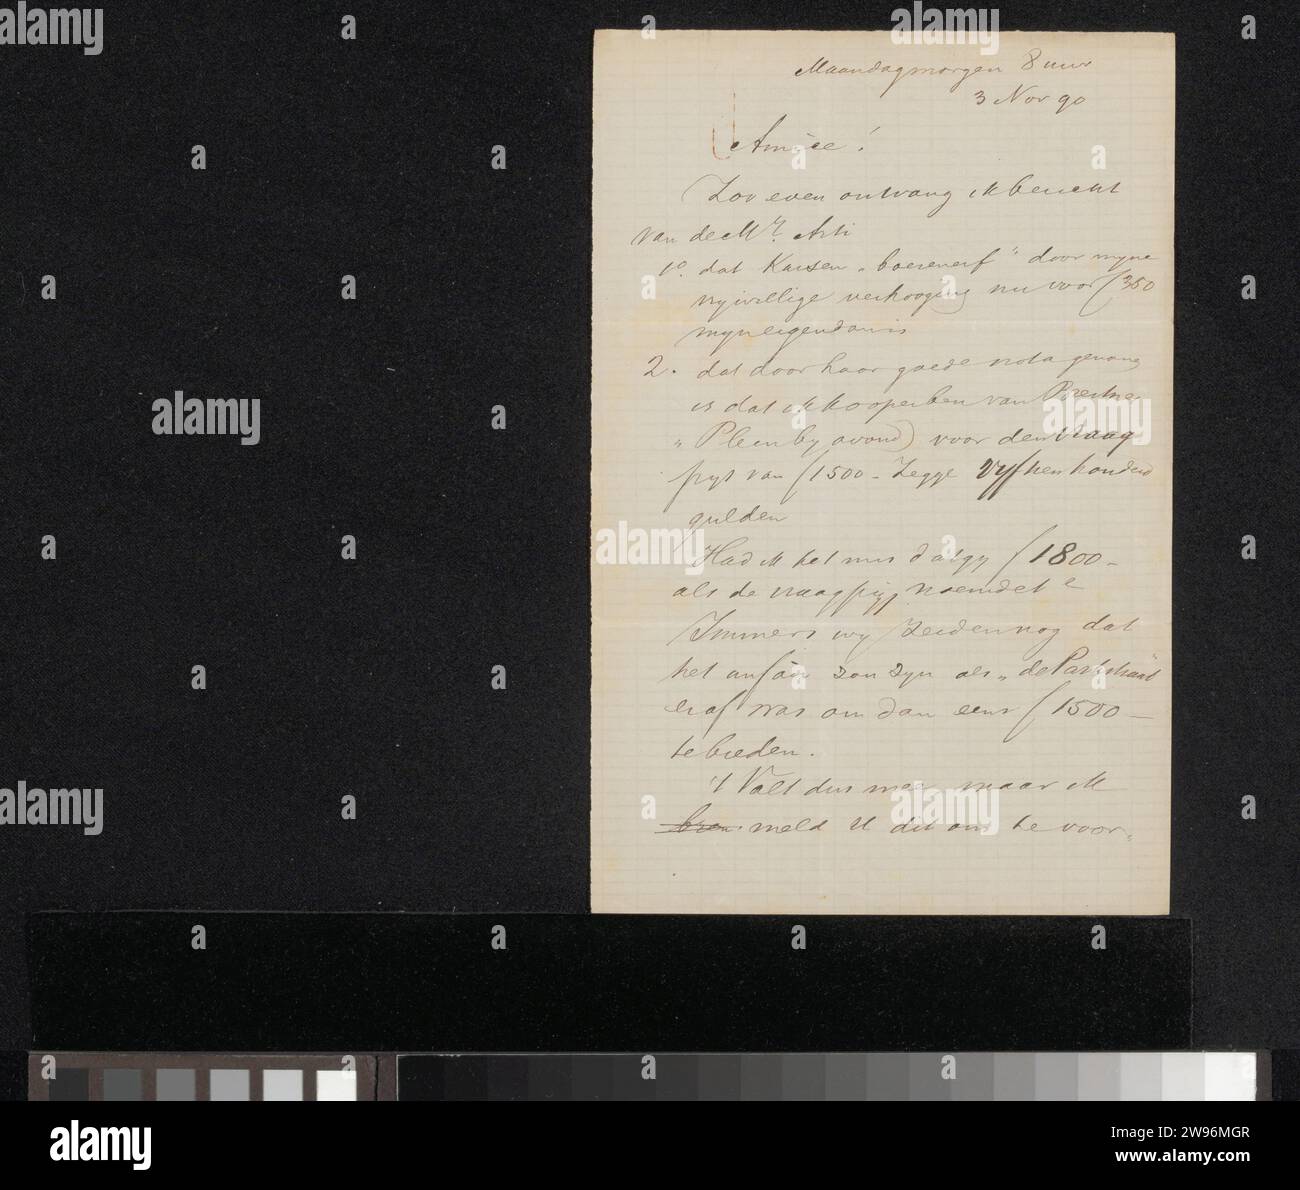 Maandagmorgen 8 uur
3 Nov 90
Amice!
Zoo even ontvang ik bericht
van de Mij. Arti
1o. dat Karsen "boerenerf" door myne
vrywillige verhooging nu voor f 350
myn eigendom is
2. dat door haar goede nota genomen
is dat ik kooper ben van Breitner
"Plein by avond) voor den vraag
prys van f 1500 - Zegge vyftien honderd
gulden
Had ik het mis dat gy f 1800-
als de vraagprys noemdet?
Immers wy zeiden nog dat
het zou zyn als "de Parkstraat"
eraf was om dan eens f 1500 -
te bieden.
't Valt dus mee, maar ik
meld U dit om te voor-
alamy
Image ID: 2W96MGR
www.alamy.com